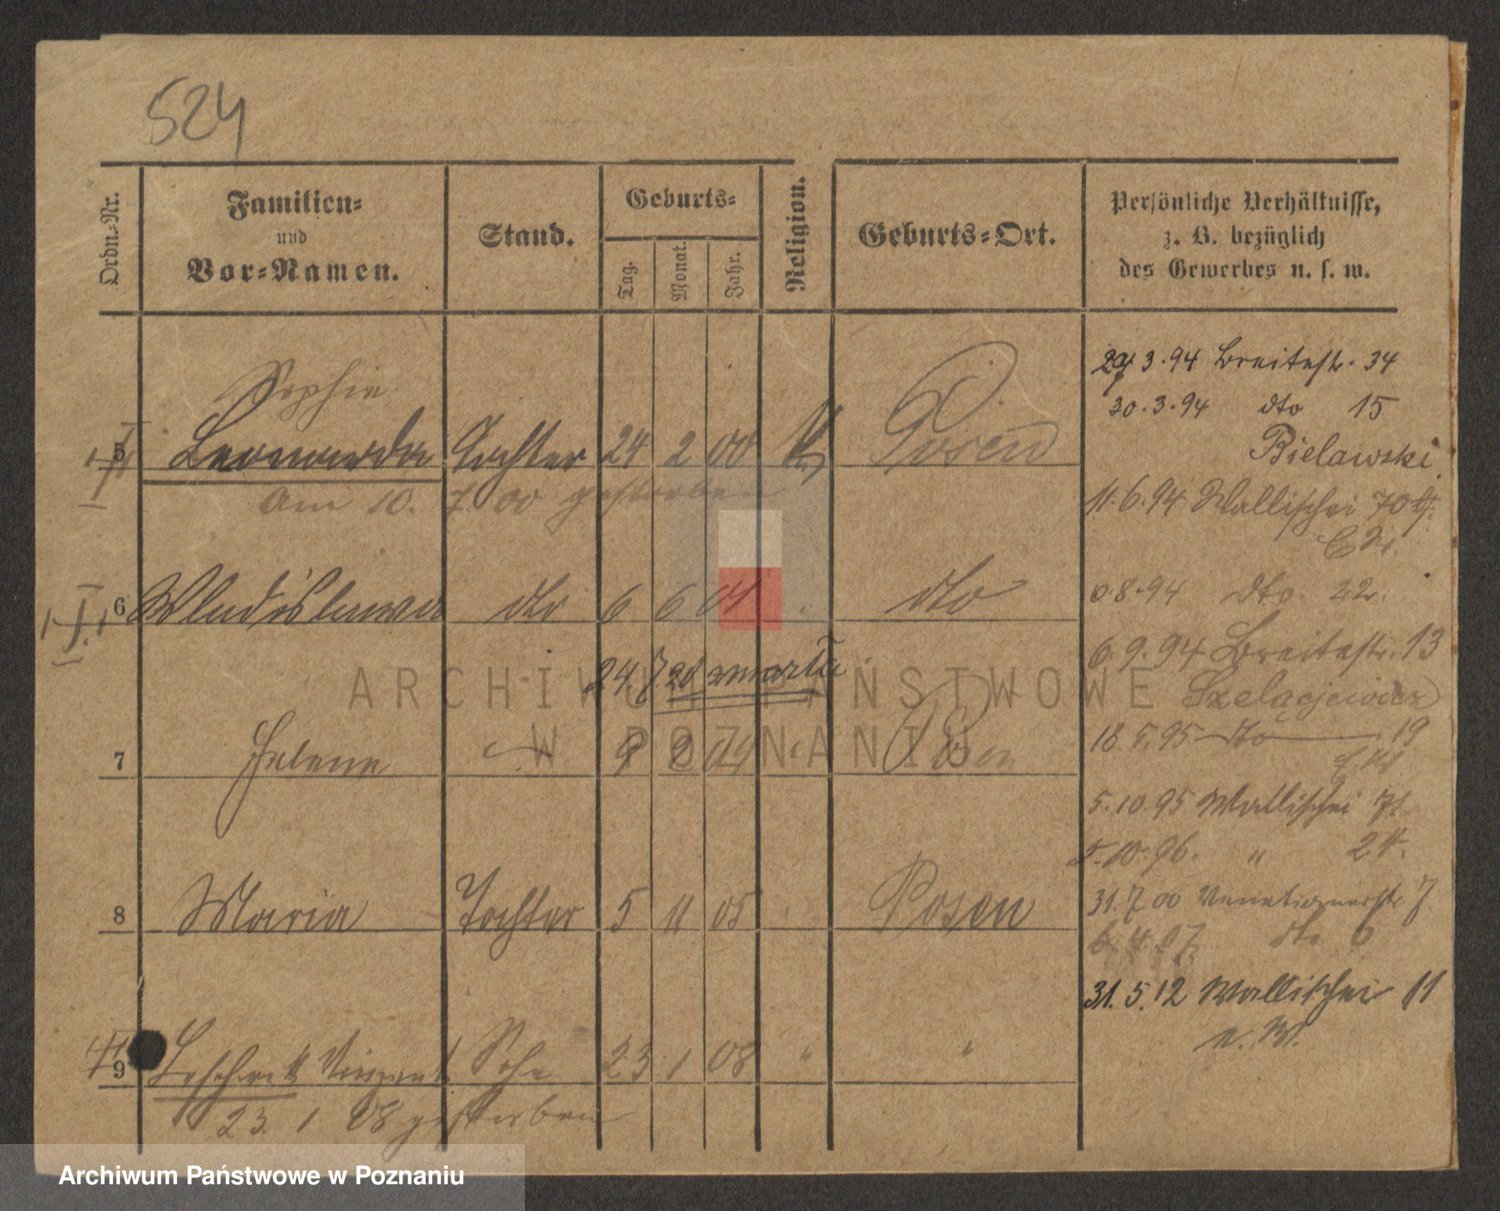 524
Ordn.-Nr.
Familien-
und
Vor-Namen.
Stand.
Geburts-
Tag.
Monat.
Jahr.
Religion.
Geburts-Ort.
Persönliche Verhältnisse,
z. B. bezüglich
des Gewerbes u. s. w.
Sophie
5 Leonarda Tochter 24 2 00 Posen
Am 10. 7. 00 gestorben
6 Wladislawa dto 6 6 01 dto
24.7
7 Helene 9 2 04 Posen
8 Maria Tochter 5 11 05 Posen
9 Vinzent Sohn 23 1 08 " "
23. 1 08 gestorben
29.3.94 Breitestr. 34
30.3.94 dto 15
Bielawski
11.6.94 Wallischei 70
8.94 dto. 22.
6.9.94 Breitestr. 13
Szelągiewicz
18.5.95 dto 19
5.10.95 Wallischei 71
5.10.96. " 24.
31.7.00 Venetianerstr 7
dto 6
31.5.12 Wallischei 11
ARCHIWUM PAŃSTWOWE
W POZNANIU
Archiwum Państwowe w Poznaniu